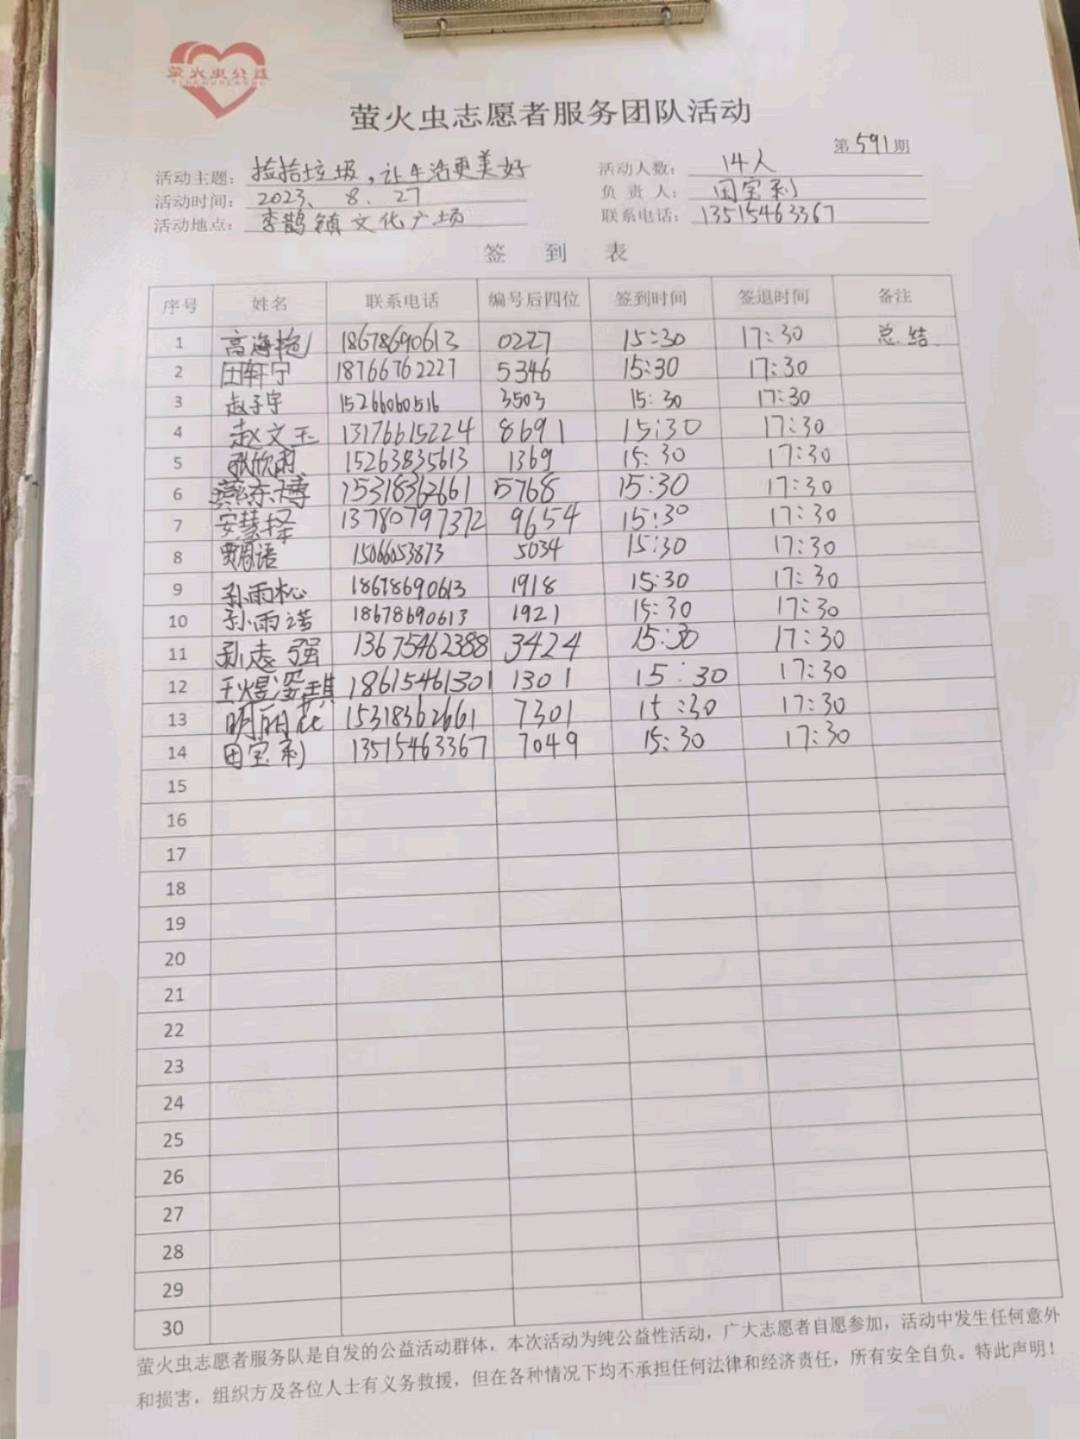 萤火虫公益
萤火虫志愿者服务团队活动
第591期
活动主题：捡拾垃圾，让生活更美好 活动人数：14人
活动时间：2023、8.27 负责人：田宝利
活动地点：李鹊镇文化广场 联系电话：13515463367
签到表
序号 姓名 联系电话 编号后四位 签到时间 签退时间 备注
1 高海艳 18678690613 0227 15:30 17:30 总结
2 田轩宁 18766762227 5346 15:30 17:30
3 赵子宇 15266060516 3503 15:30 17:30
4 赵文玉 13176615224 8691 15:30 17:30
5 张欣雨 15263835613 1369 15:30 17:30
6 蔡东博 15318362661 5768 15:30 17:30
7 安慧择 13780797372 9654 15:30 17:30
8 15066053873 5034 15:30 17:30
9 孙雨松 18678690613 1918 15:30 17:30
10 孙雨诺 18678690613 1921 15:30 17:30
11 孙志强 13675462388 3424 15:30 17:30
12 王煜滢琪 18615461301 1301 15:30 17:30
13 明丽花 15318362661 7301 15:30 17:30
14 田宝利 13515463367 7049 15:30 17:30
15
16
17
18
19
20
21
22
23
24
25
26
27
28
29
30
萤火虫志愿者服务队是自发的公益活动群体，本次活动为纯公益性活动，广大志愿者自愿参加，活动中发生任何意外
和损害，组织方及各位人士有义务救援，但在各种情况下均不承担任何法律和经济责任，所有安全自负。特此声明！